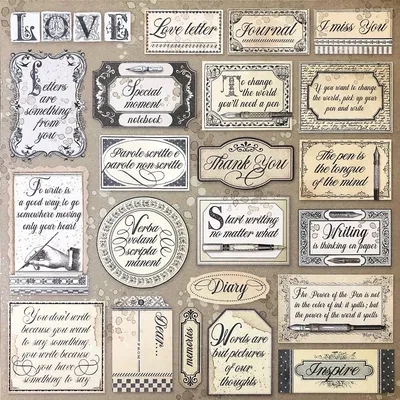 LOVE
Love letter
Journal
I miss You
Letters
are
something
from
you
Special
moment
notebook
To change
the world
you'll need a pen
If you want to change
the world, pick up your
pen and write
Parole scritte e
parole non scritte
Thank You
The pen is
the tongue
of the mind
To write is
a good way to go
somewhere moving
only your heart
Verba
volant
scripta
manent
Start writing
no matter what
Writing
is thinking on paper
Diary
The Power of the Pen is not
in the color of ink it spells; but
the power of the word it spells
You don't write
because you want
to say something
you write because
you have
something to say
Dear...
memories
Words are
but pictures
of our
thoughts
Inspire